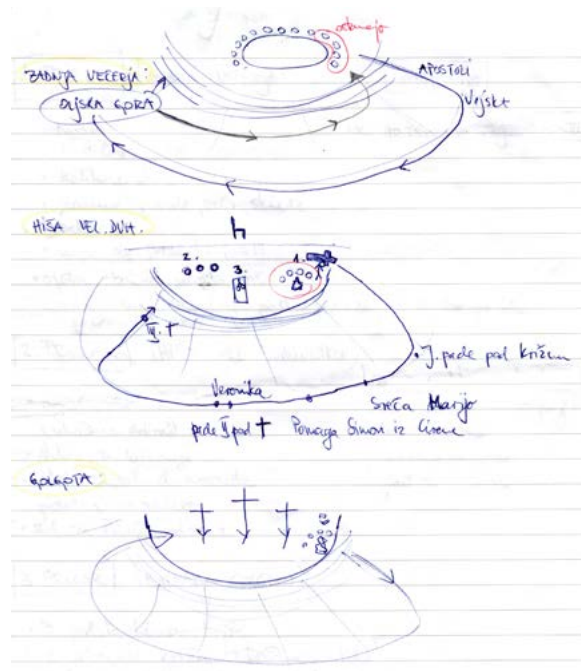 ostanejo
ZADNJA VEČERJA:
OLJSKA GORA
APOSTOLI
Vojska
HIŠA VEL. DUH.
h
2.
3.
1.
III. †
J. pade pod križem
Veronika
Sreča Marijo
pade II pod † Pomaga Simon iz Cirene
GOLGOTA: